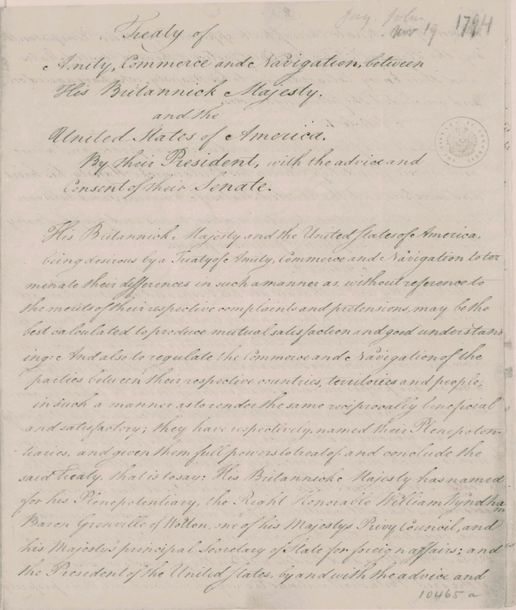 Jay, John
Nov 19 1794
Treaty of
Amity, Commerce and Navigation, between
His Britannick Majesty.
and the
United States of America.
By their President, with the advice and
Consent of their Senate.
His Britannick Majesty and the United States of America,
being desirous by a Treaty of Amity, Commerce and Navigation to ter
minate their differences in such a manner as without reference to
the merits of their respective complaints and pretensions, may be the
best calculated to produce mutual satisfaction and good understand
ing: And also to regulate the Commerce and Navigation of the
parties between their respective countries, territories and people;
in such a manner as to render the same reciprocally beneficial
and satisfactory; they have respectively, named their Plenipoten
tiaries, and given them full powers to treat of and conclude the
said Treaty, that is to say: His Britannick Majesty has named
for his Plenipotentiary, the Right Honorable William Wyndham
Baron Grenville of Wotton, one of his Majestys Privy Council, and
his Majesty's principal Secretary of State for foreign affairs; and
the President of the United States, by and with the advice and
10465 a